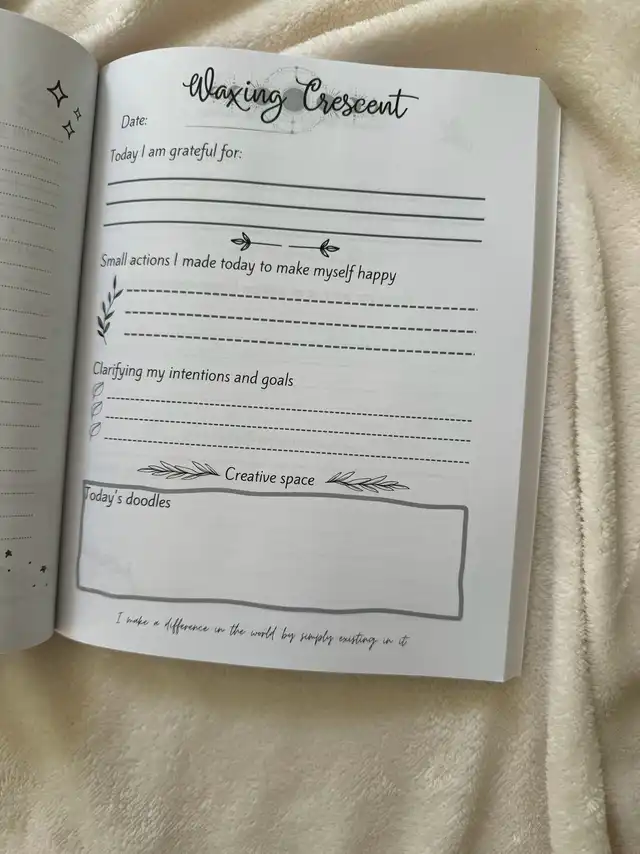 Waxing Crescent
Date:
Today I am grateful for:
Small actions I made today to make myself happy
Clarifying my intentions and goals
Creative space
Today's doodles
I make a difference in the world by simply existing in it